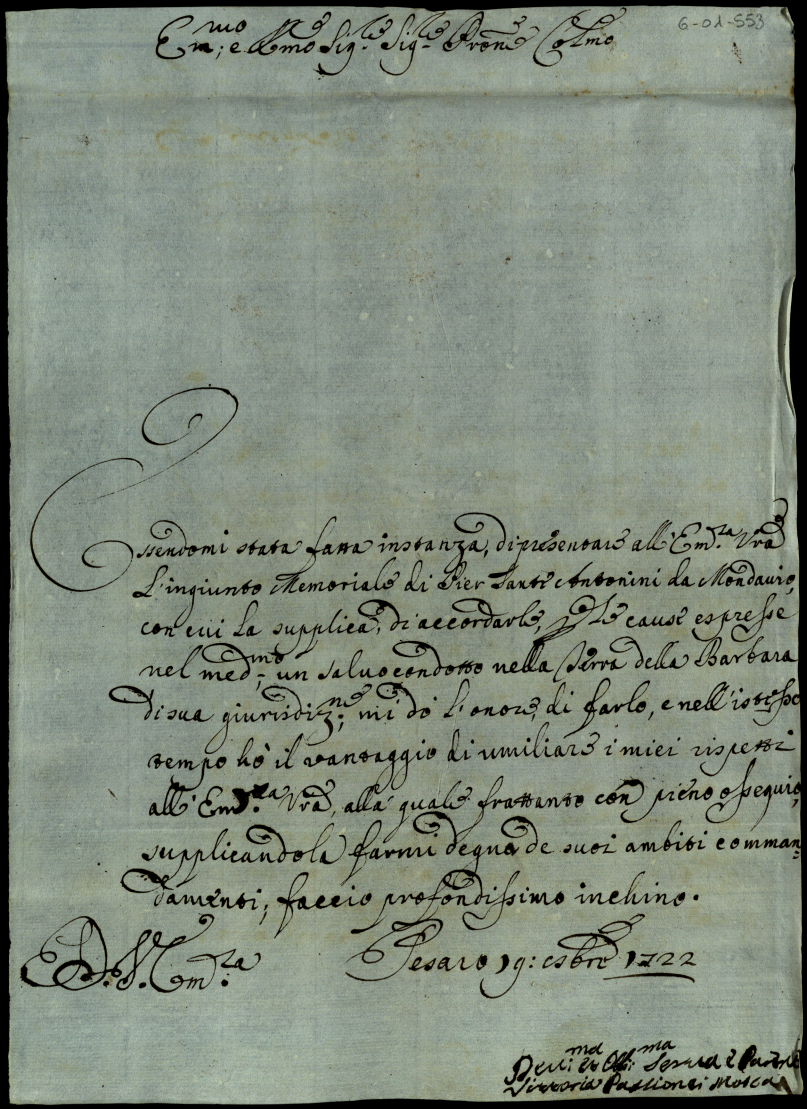 6-01-553
Em:mo e Rmo Sig.re Sig.re Prone Colmo
Essendomi stata fatta instanza, di presentare all' Em.za Vra
L'ingiunto Memoriale di Pier Santi Antonini da Mondavio,
con cui La supplica, di accordarle, p le cause espresse
nel med:mo un salvocondotto nella Terra della Barbara
di sua giurisdiz:ne, mi dò l'onore, di farlo, e nell'istesso
tempo hò il vantaggio di umiliare i miei rispetti
all' Em.za Vra, alla quale frattanto con pieno ossequio,
supplicandola farmi degna de suoi ambiti comman=
damenti, faccio profondissimo inchino.
D. V. Em:za Pesaro 19: Xbre 1722
Dev:ma et Obb:ma Serva e Parente
Vittoria Passionei Mosca